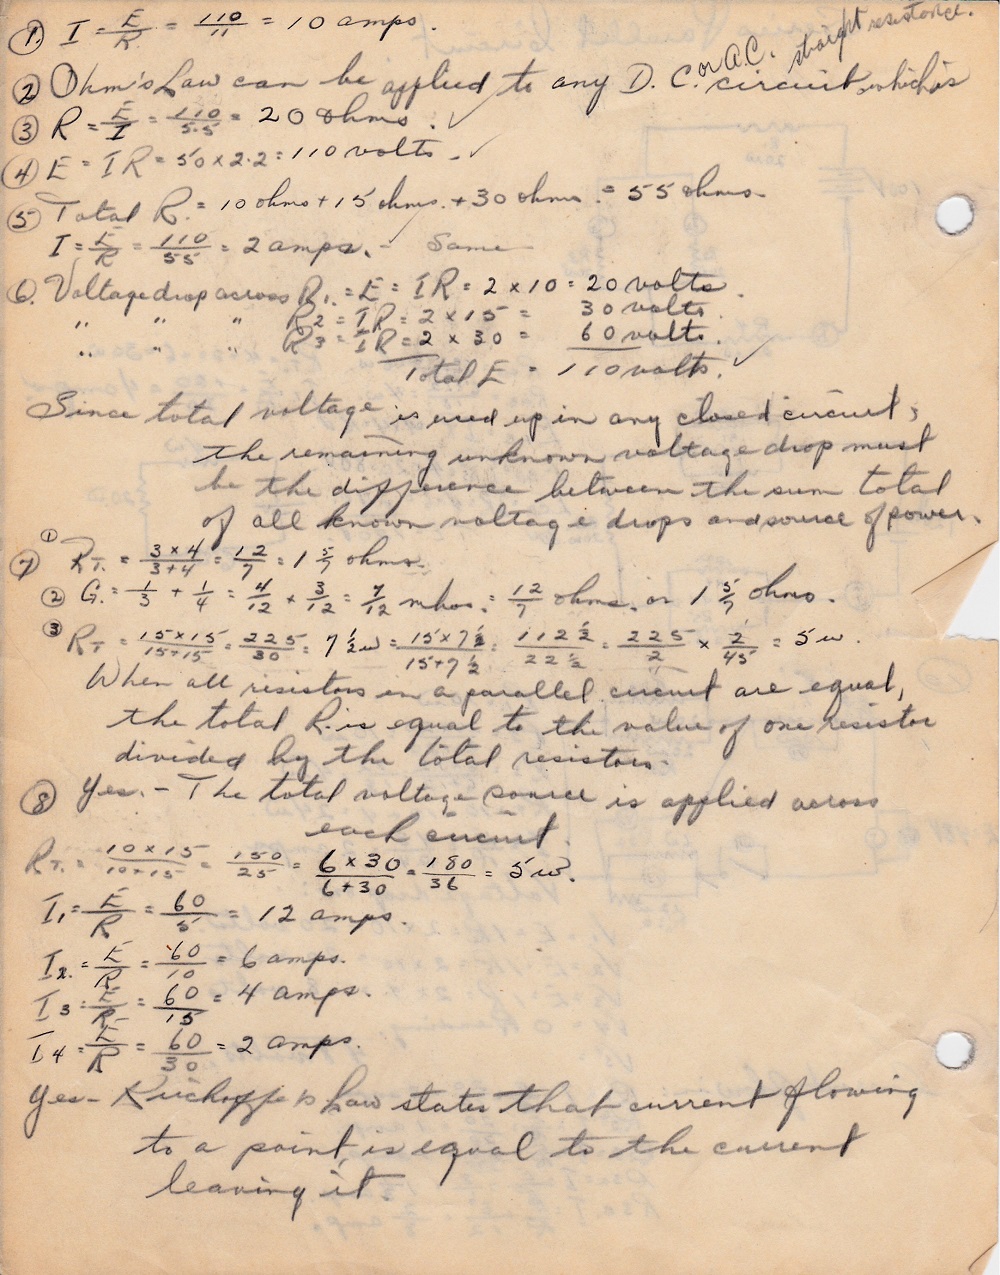 1. I = E/R = 110/11 = 10 amps.
2 Ohm's Law can be applied to any D.C. or A.C. circuit which is straight resistance.
3 R = E/I = 110/5.5 = 20 ohms.
4 E = IR = 50 x 2.2 = 110 volts.
5 Total R. = 10 ohms + 15 ohms. + 30 ohms. = 55 ohms.
I = E/R = 110/55 = 2 amps. - Same
6. Voltage drop across R1. = E = IR = 2 x 10 = 20 volts.
" " " R2 = IR = 2 x 15 = 30 volts.
" " " R3 = IR = 2 x 30 = 60 volts.
Total E = 110 volts.
Since total voltage is used up in any closed circuit,
the remaining unknown voltage drop must
be the difference between the sum total
of all known voltage drops and source of power.
7 1 RT. = 3x4/3+4 = 12/7 = 1 5/7 ohms.
2 G. = 1/3 + 1/4 = 4/12 + 3/12 = 7/12 mhos. = 12/7 ohms. or 1 5/7 ohms.
3 RT = 15x15/15+15 = 225/30 = 7 1/2 ω = 15x7 1/2/15+7 1/2 = 112 1/2/22 1/2 = 225/2 x 2/45 = 5 ω.
When all resistors in a parallel circuit are equal,
the total R. is equal to the value of one resistor
divided by the total resistors.
8 Yes. - The total voltage source is applied across
each circuit.
RT. = 10x15/10+15 = 150/25 = 6x30/6+30 = 180/36 = 5 ω.
I1 = E/R = 60/5 = 12 amps.
I2. = E/R = 60/10 = 6 amps.
I3 = E/R = 60/15 = 4 amps.
I4 = E/R = 60/30 = 2 amps.
Yes - Law states that current flowing
to a point, is equal to the current
leaving it.